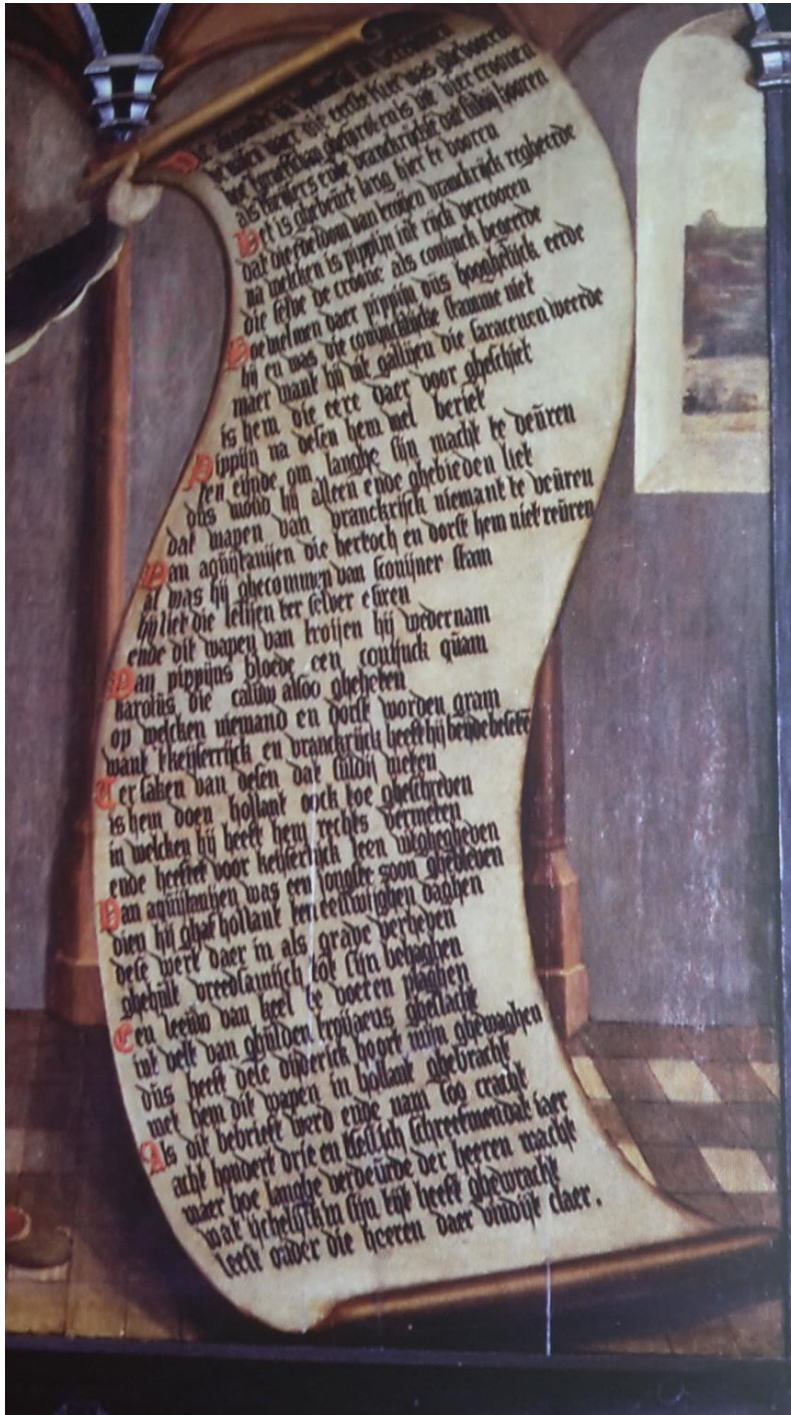 was ghebooren
wijsen waer die eerste stier was
ghesproten is uit vier croonen
als keijsers ende vranckrijcke dat suldij hooren
Het is ghebeurt lang hier te vooren
dat die edeldom van troijen vranckrijck regheerde
na welcken is pippijn int rijck vercooren
die selve de croone als coninck begeerde
Hoe welmen daer pippijn dus hooghelijck eerde
hij en was die coninclijcke stamme niet
maer want hij uit gallijen die saracenen weerde
is hem die eere daer voor gheschiet
Pippijn na desen hem wel beriet
ten eijnde om langhe sijn macht te deuren
dus woud hij alleen ende ghebieden liet
dat wapen van vranckrijck niemant te veuren
Van aquijtanijen die hertoch en dorst hem niet reuren
al was hij ghecommen van sconijner stam
hij liet die lelijen ter selver euren
ende dit wapen van troijen hij wedernam
Van pippijns bloede een coninck quam
karolus die caluw alsoo gheheten
op welcken niemand en dorst worden gram
want tkeijserrijck en vranckrijck heeft hij beijde beseten
Ter saken van desen dat suldij weten
is hem doen hollant oock toe ghescreven
in welcken hij heeft hem rechts vermeten
ende heeftet voor keijserlijck leen weghegheven
Van aquijtanijen was een jongste soon ghebleven
dien hij ghaf hollant ten eeuwighen daghen
dese wert daer in als grave verheven
ghehult vreedsamijch tot sijn behaghen
Een leeuw van keel te voeren plaghen
int velt van ghulden troijaens gheslacht
dus heeft dese dijderick hoort mijn ghewaghen
met hem dit wapen in hollant ghebracht
Als dit bebrieft werd ende nam soo cracht
acht hondert drie en tsestich schreefmen dat jaer
maer hoe langhe verdeurde der heeren macht
wat ijchelijck in sijn tijt heeft ghewracht
leest onder die heeren daer vindijt claer.